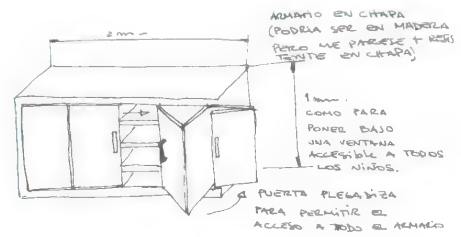 ARMARIO EN CHAPA
(PODRIA SER EN MADERA
PERO ME PARESE + RESIS
TENTE EN CHAPA)
2 m
1 m.
COMO PARA
PONER BAJO
UNA VENTANA
ACCESIBLE A TODOS
LOS NIÑOS.
PUERTA PLEGADIZA
PARA PERMITIR EL
ACCESO A TODO EL ARMARIO